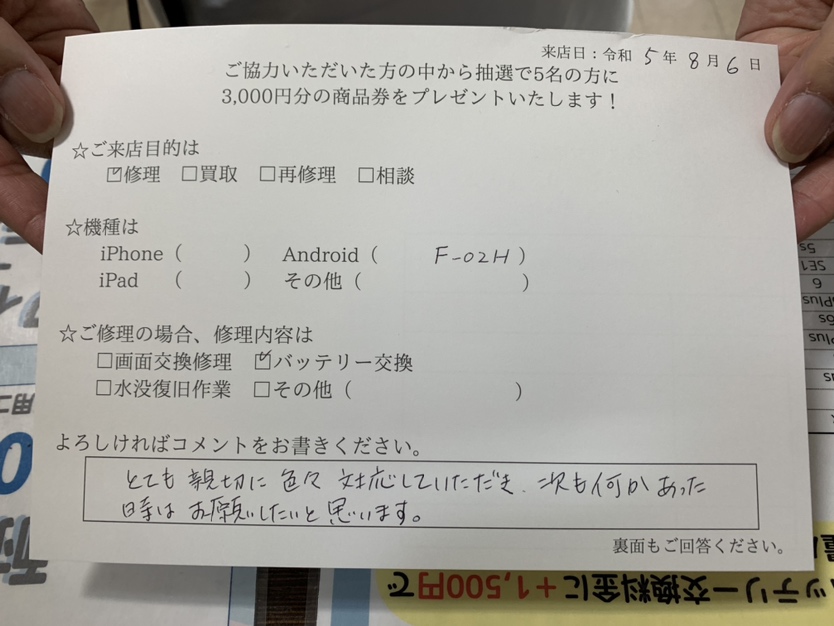 来店日：令和 5 年 8 月 6 日
ご協力いただいた方の中から抽選で5名の方に
3,000円分の商品券をプレゼントいたします！
☆ご来店目的は
☑修理 □買取 □再修理 □相談
☆機種は
iPhone（ ） Android（ F-02H ）
iPad （ ） その他（ ）
☆ご修理の場合、修理内容は
□画面交換修理 ☑バッテリー交換
□水没復旧作業 □その他（ ）
よろしければコメントをお書きください。
とても親切に色々対応していただき、次も何かあった
時はお願いしたいと思います。
裏面もご回答ください。
5s
SE1
6
6s
Plus
ッテリー交換料金に+1,500円で